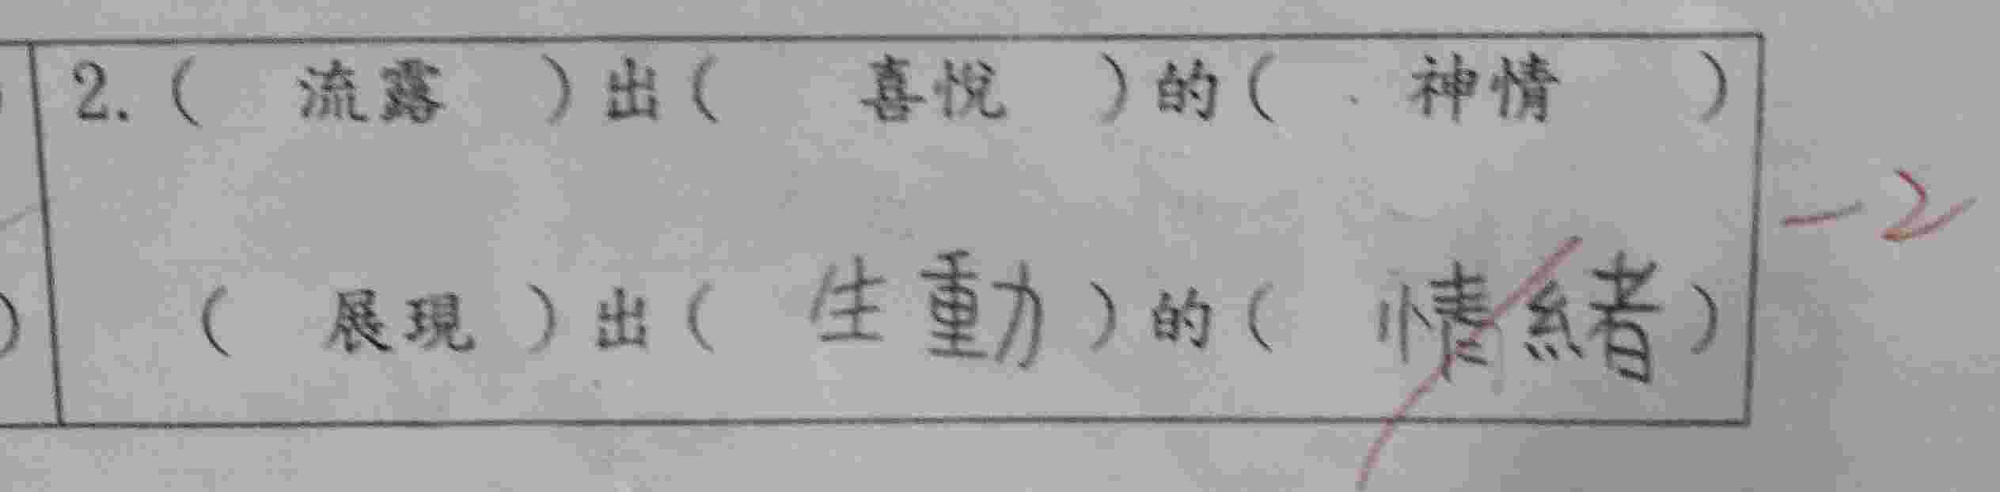 2.( 流露 )出( 喜悅 )的( 神情 )
-2
( 展現 )出( 生動 )的( 情緒 )